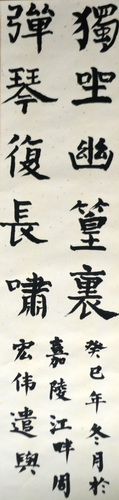 獨坐幽篁裏
彈琴復長嘯
癸巳年冬月於
嘉陵江畔周
宏伟遣興